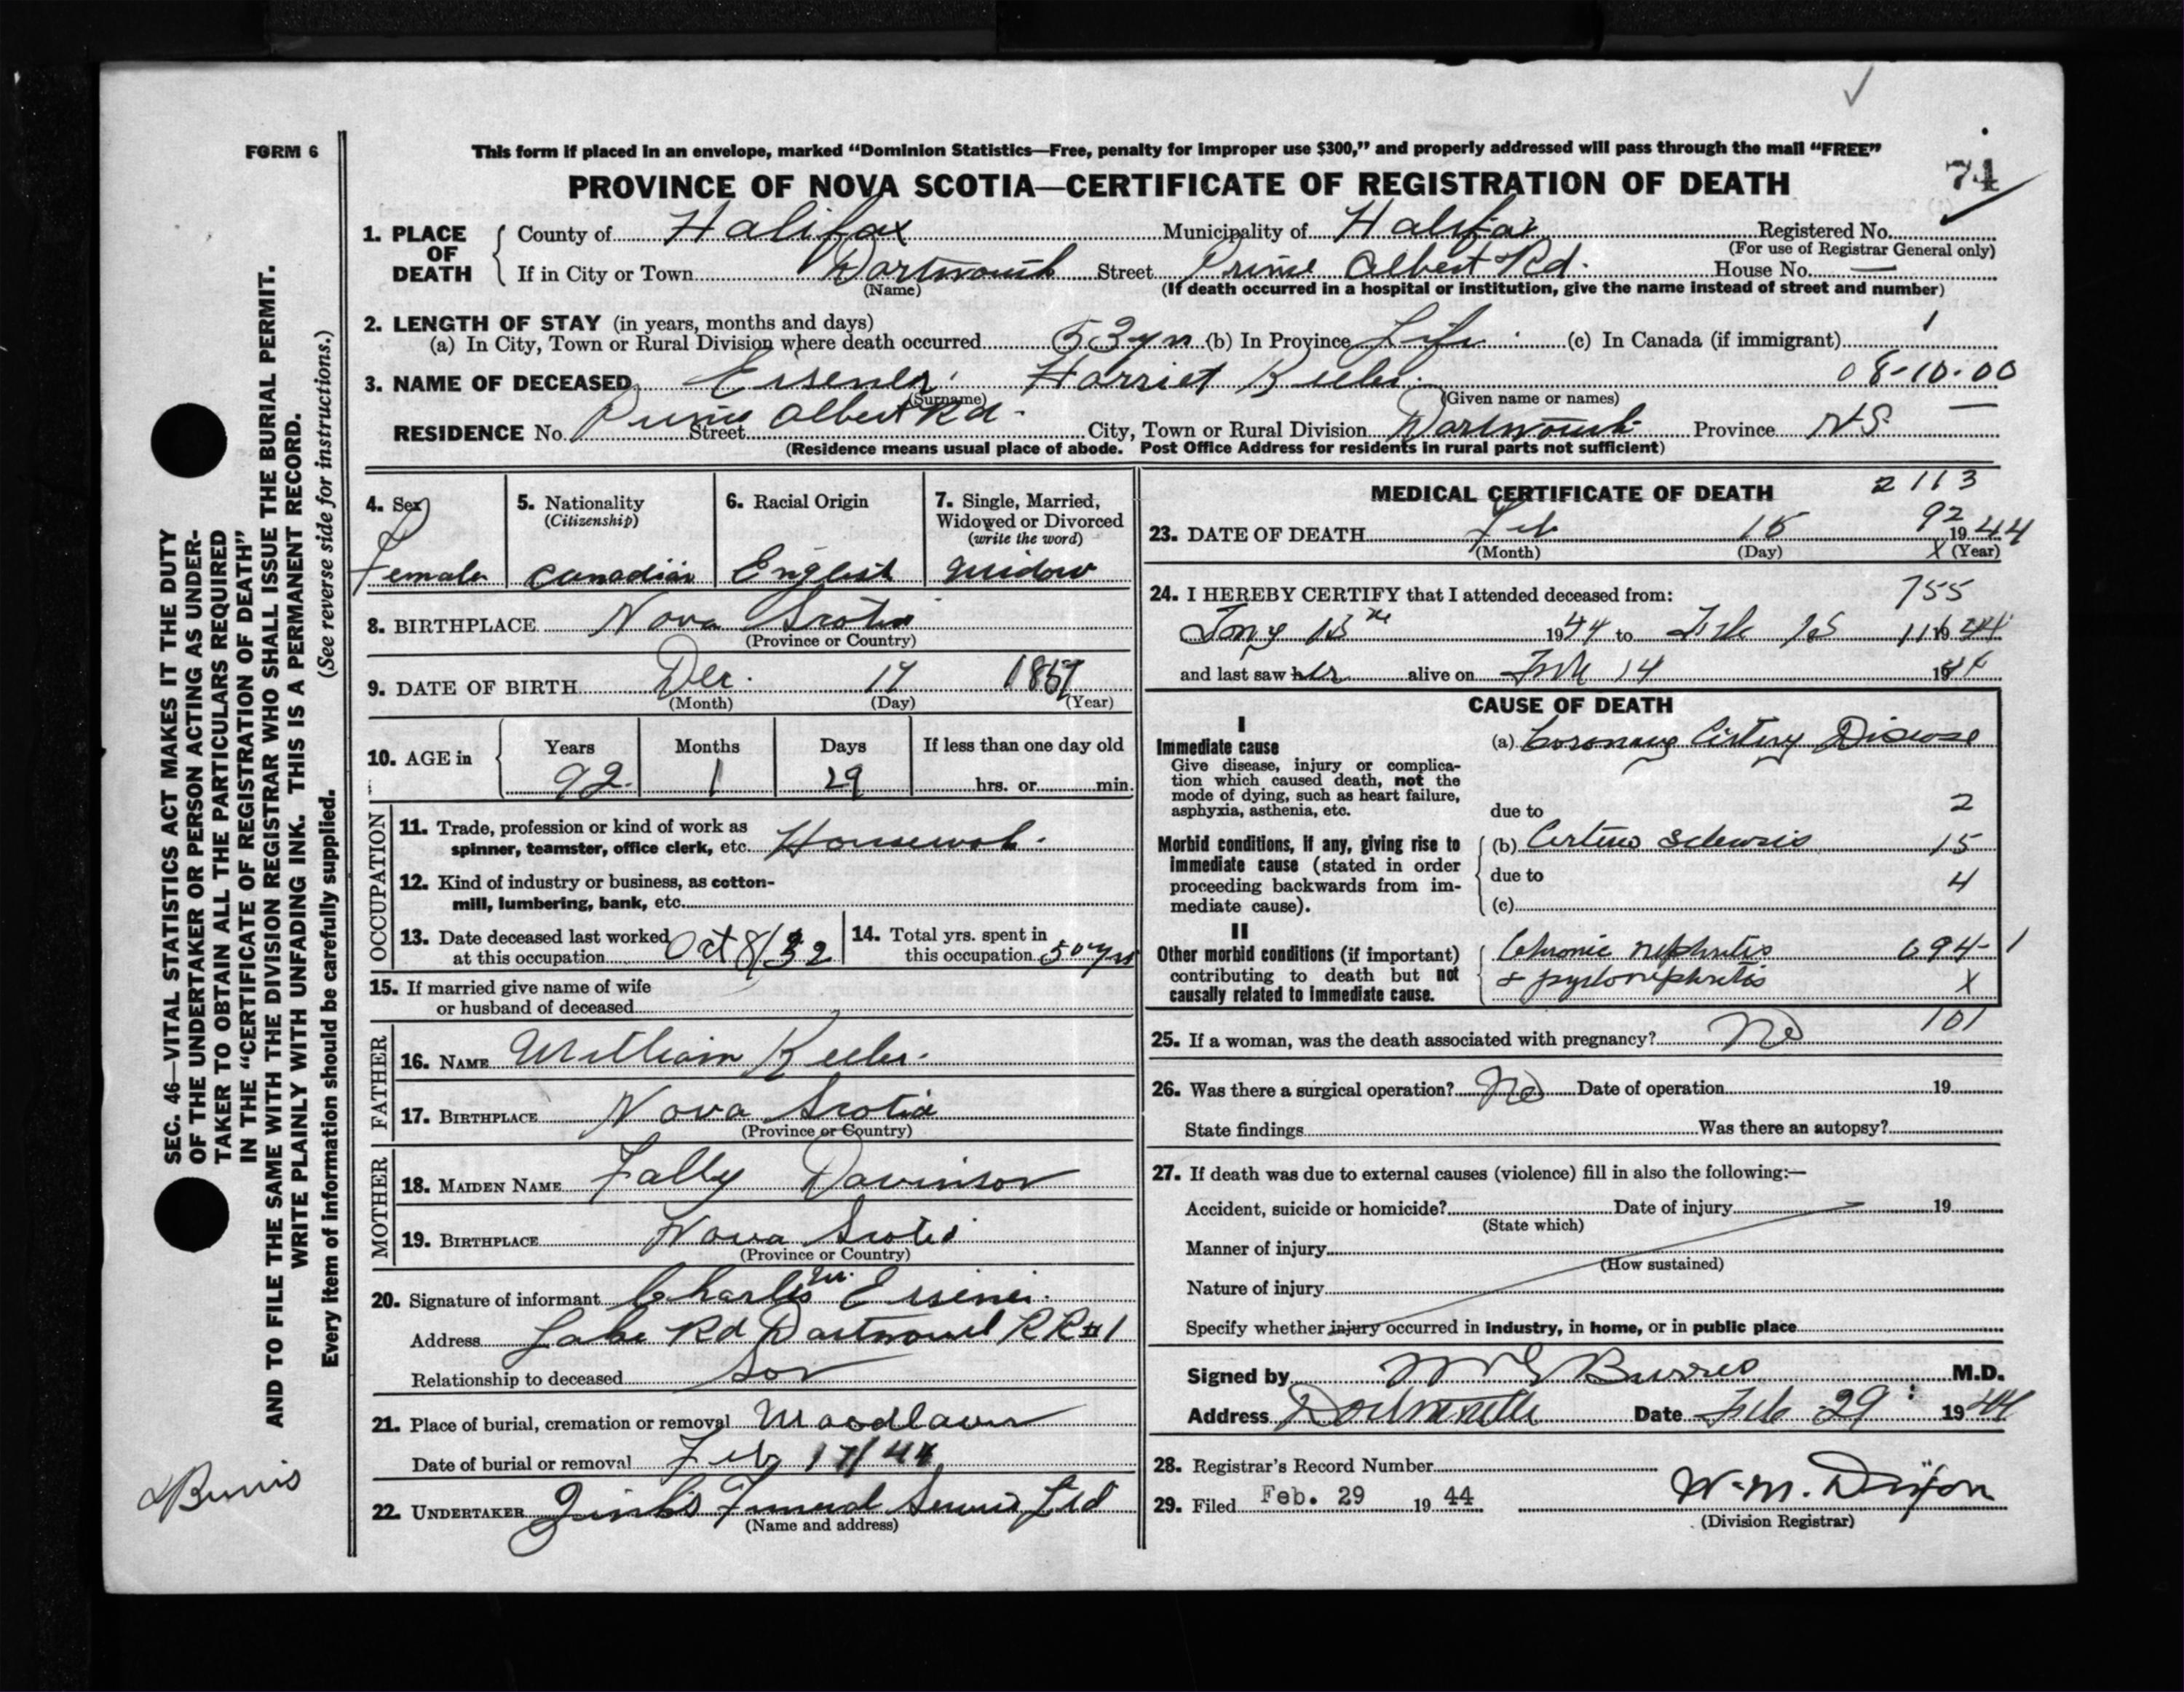 FORM 6
This form if placed in an envelope, marked "Dominion Statistics—Free, penalty for improper use $300," and properly addressed will pass through the mail "FREE"
PROVINCE OF NOVA SCOTIA—CERTIFICATE OF REGISTRATION OF DEATH
74
1. PLACE OF DEATH
County of Halifax Municipality of Halifax Registered No.
(For use of Registrar General only)
If in City or Town Dartmouth Street Prince Albert Rd. House No. —
(Name) (If death occurred in a hospital or institution, give the name instead of street and number)
2. LENGTH OF STAY (in years, months and days)
(a) In City, Town or Rural Division where death occurred 53 yrs (b) In Province Life (c) In Canada (if immigrant) 1
3. NAME OF DECEASED Eisener Harriet Keeler 08-10-00
(Surname) (Given name or names)
RESIDENCE No. Prince Albert Rd. Street City, Town or Rural Division Dartmouth Province N.S. —
(Residence means usual place of abode. Post Office Address for residents in rural parts not sufficient)
4. Sex
Female
5. Nationality
(Citizenship)
Canadian
6. Racial Origin
English
7. Single, Married,
Widowed or Divorced
(write the word)
Widow
8. BIRTHPLACE Nova Scotia
(Province or Country)
9. DATE OF BIRTH Dec. 17
(Month) (Day) (Year)
10. AGE in
Years Months Days If less than one day old
92 1 29 hrs. or min.
OCCUPATION
11. Trade, profession or kind of work as
spinner, teamster, office clerk, etc. Housework.
12. Kind of industry or business, as cotton-
mill, lumbering, bank, etc.
13. Date deceased last worked
at this occupation Oct 8/32
14. Total yrs. spent in
this occupation 50 yrs
15. If married give name of wife
or husband of deceased
FATHER
16. NAME William Keeler.
17. BIRTHPLACE Nova Scotia
(Province or Country)
MOTHER
18. MAIDEN NAME Davinson
19. BIRTHPLACE Nova Scotia
(Province or Country)
20. Signature of informant Charles Eisener.
Address Lake Rd Dartmouth RR#1
Relationship to deceased Son
21. Place of burial, cremation or removal Woodlawn
Date of burial or removal Feb 17/44
22. UNDERTAKER Zink's Funeral Service Ltd
(Name and address)
MEDICAL CERTIFICATE OF DEATH 2113
92
23. DATE OF DEATH Feb 15 1944
(Month) (Day) X (Year)
24. I HEREBY CERTIFY that I attended deceased from: 755
1944 to Feb 15 1944
and last saw her alive on Feb 14 1944
CAUSE OF DEATH
I
Immediate cause
Give disease, injury or complica-
tion which caused death, not the
mode of dying, such as heart failure,
asphyxia, asthenia, etc.
(a) Coronary Artery Disease
due to 2
Morbid conditions, if any, giving rise to
immediate cause (stated in order
proceeding backwards from im-
mediate cause).
(b) Arterio Sclerosis 15
due to 4
(c)
II
Other morbid conditions (if important)
contributing to death but not
causally related to immediate cause.
Chronic nephritis 094-1
& pyelonephritis X
101
25. If a woman, was the death associated with pregnancy? No
26. Was there a surgical operation? No Date of operation 19
State findings Was there an autopsy?
27. If death was due to external causes (violence) fill in also the following:—
Accident, suicide or homicide? Date of injury 19
(State which)
Manner of injury
(How sustained)
Nature of injury
Specify whether injury occurred in industry, in home, or in public place
Signed by Burris M.D.
Address Dartmouth Date Feb 29 1944
28. Registrar's Record Number
29. Filed Feb. 29 19 44 W.M. Dixon
(Division Registrar)
SEC. 46—VITAL STATISTICS ACT MAKES IT THE DUTY
OF THE UNDERTAKER OR PERSON ACTING AS UNDER-
TAKER TO OBTAIN ALL THE PARTICULARS REQUIRED
IN THE "CERTIFICATE OF REGISTRATION OF DEATH"
AND TO FILE THE SAME WITH THE DIVISION REGISTRAR WHO SHALL ISSUE THE BURIAL PERMIT.
WRITE PLAINLY WITH UNFADING INK. THIS IS A PERMANENT RECORD.
Every item of information should be carefully supplied. (See reverse side for instructions.)
Burris